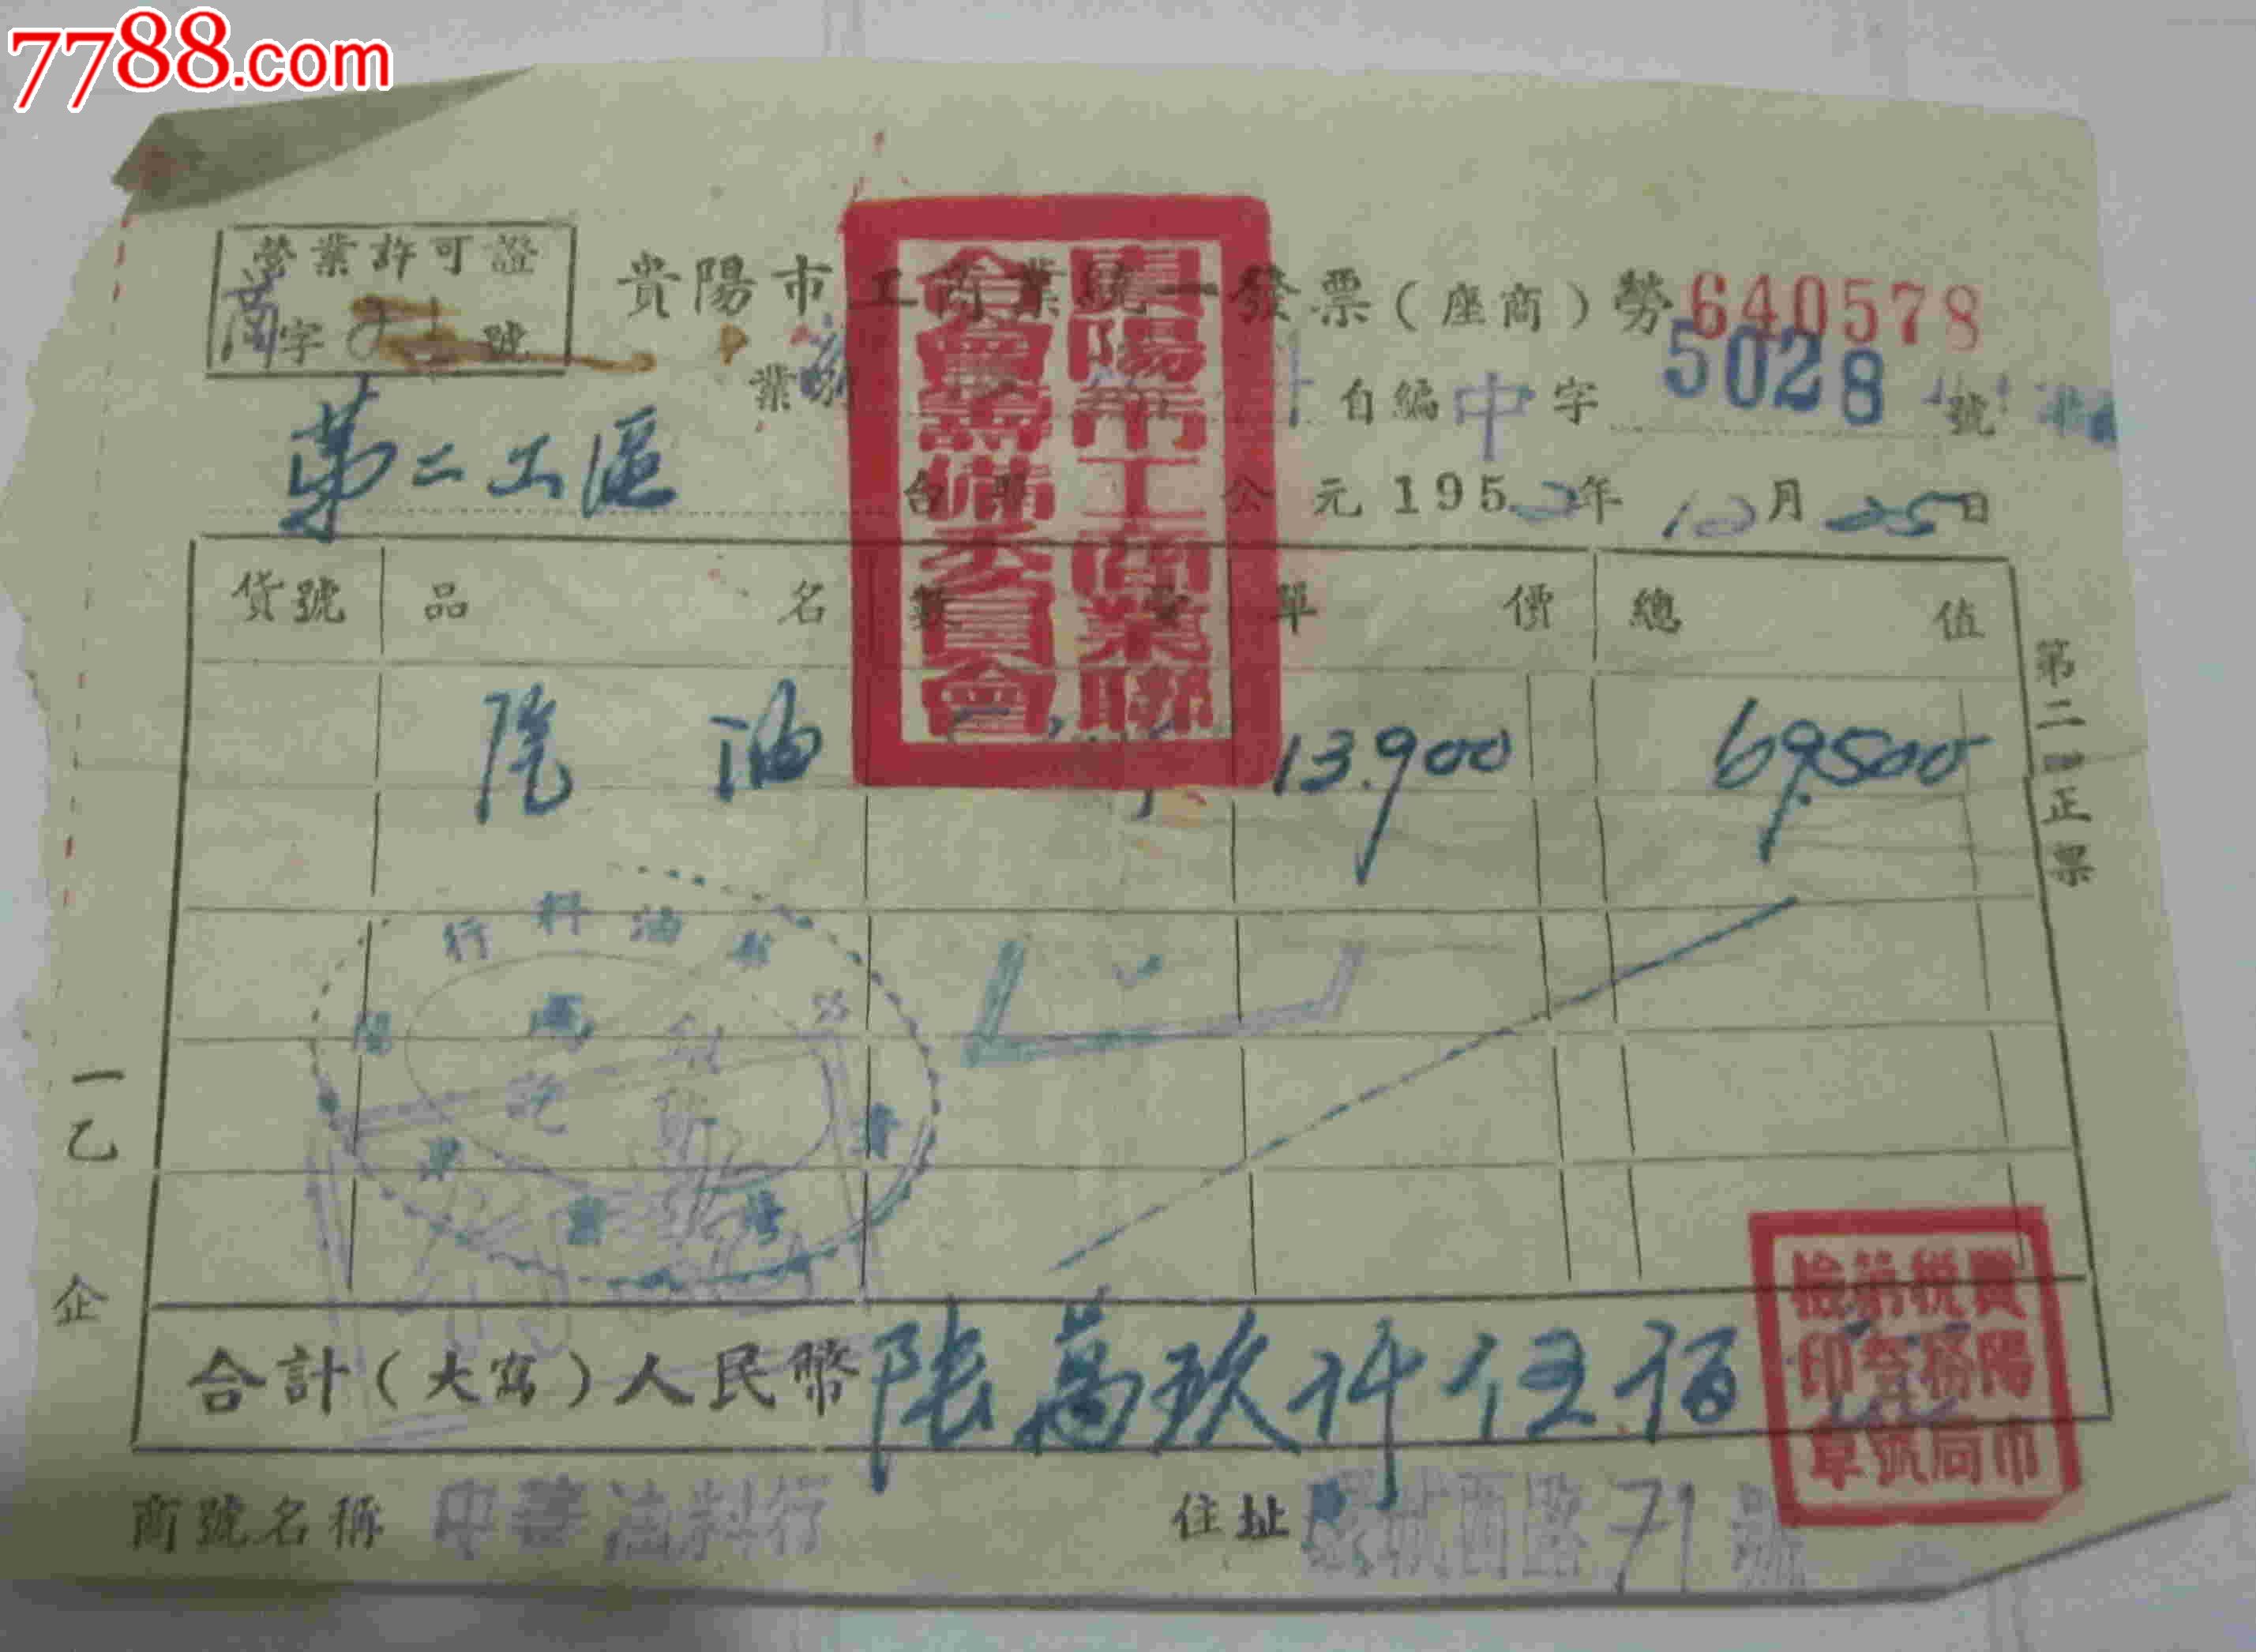 7788.com
營業許可證
商字 號
貴陽市工商業統一發票(座商)勞640578
業 自編中字5028號
第二工區 台照 公元1952年10月25日
貨號 品名 數量 單價 總值
汽油 13.900 69.500
第二聯正票
行料油
一乙 企
合計(大寫)人民幣陸萬玖仟伍佰
商號名稱 中華油料行 住址 西路71號
貴陽市工商業聯合會籌備委員會
貴陽市稅務局 檢印章